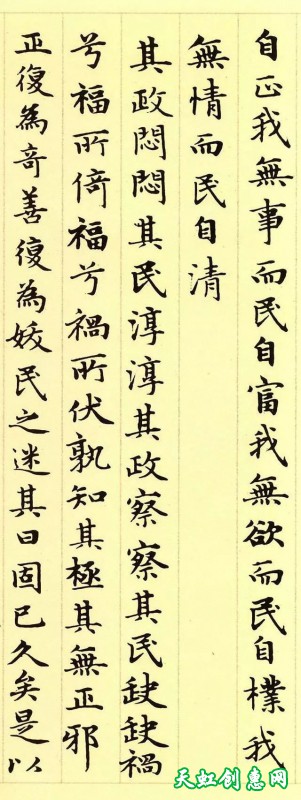 自正我無事而民自富我無欲而民自樸我
無情而民自清
其政悶悶其民淳淳其政察察其民缺缺禍
兮福所倚福兮禍所伏孰知其極其無正邪
正復為奇善復為妖民之迷其日固已久矣是以
天虹创惠网